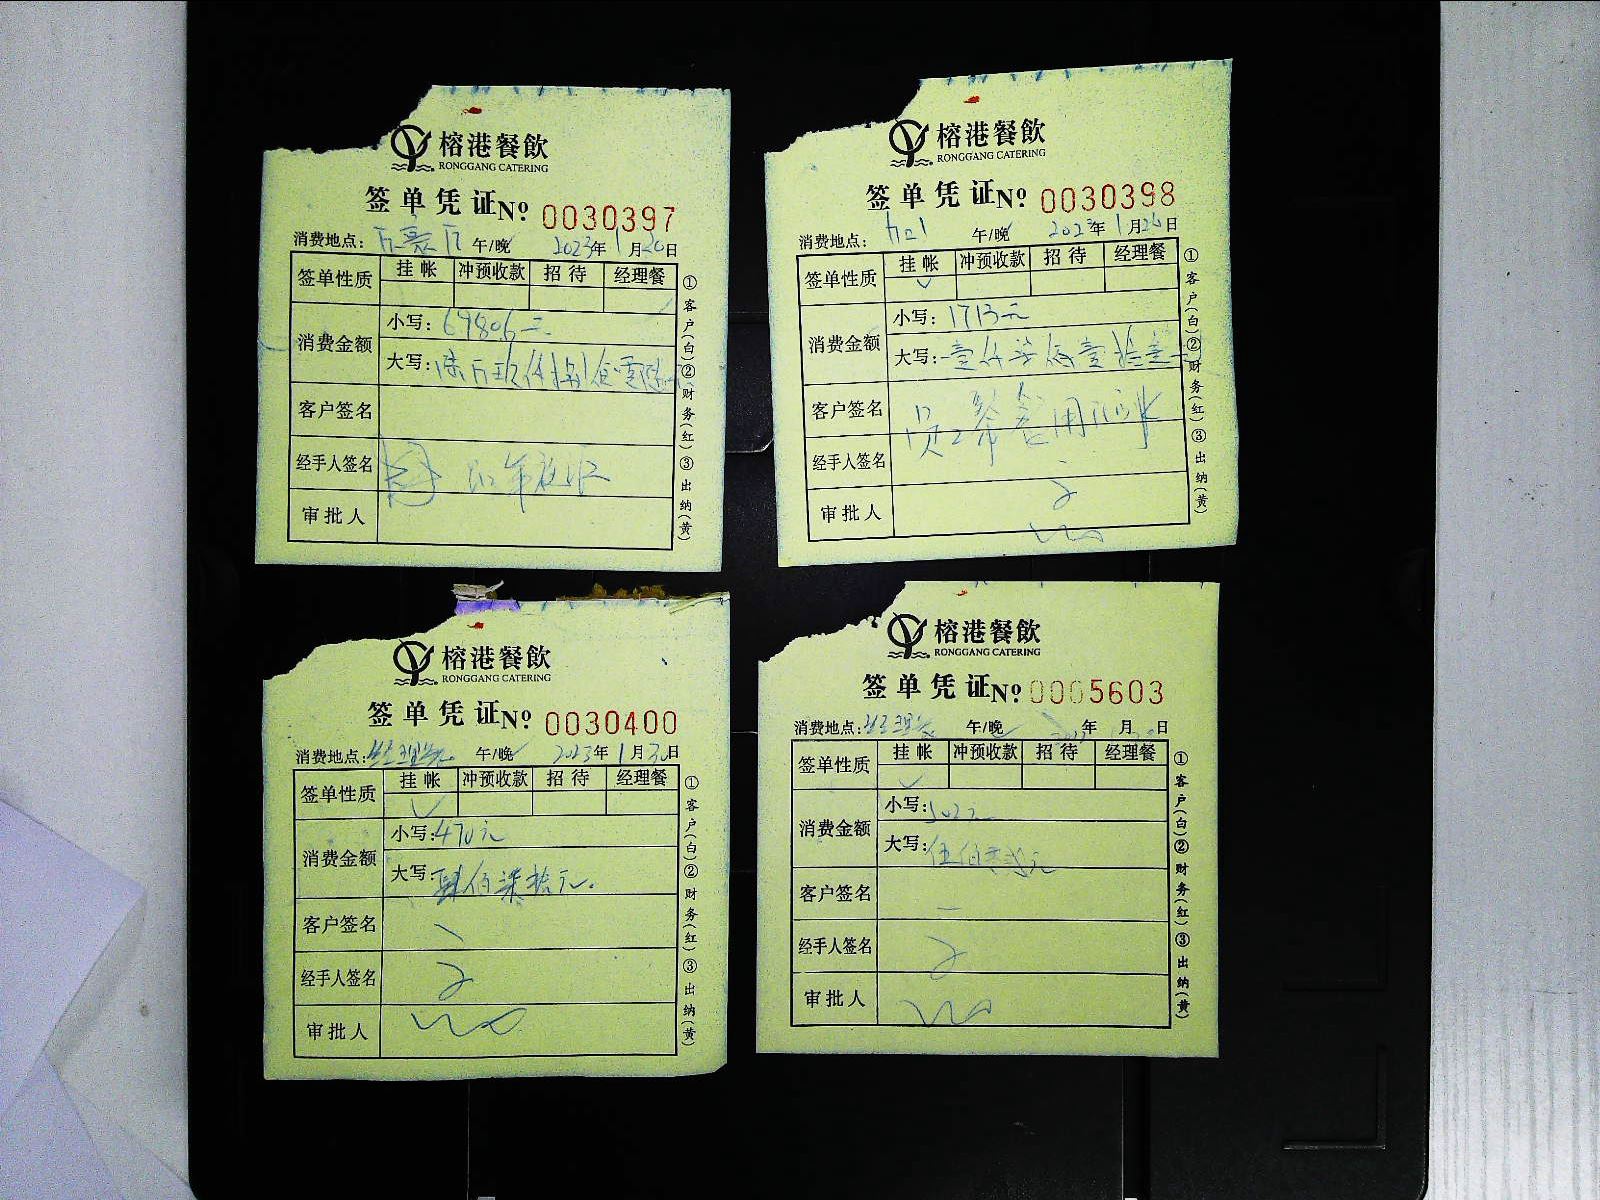 榕港餐飲
RONGGANG CATERING
签单凭证 Nº 0030397
消费地点: 午/晚 2023年1月20日
签单性质 挂帐 冲预收款 招待 经理餐
消费金额 小写: 69806元
大写:
客户签名
经手人签名 年夜饭
审批人
①客户(白)②财务(红)③出纳(黄)
榕港餐飲
RONGGANG CATERING
签单凭证 Nº 0030398
消费地点: 午/晚 2023年1月26日
签单性质 挂帐 冲预收款 招待 经理餐
✓
消费金额 小写: 1713元
大写: 壹仟柒佰壹拾叁元
客户签名 员工聚餐用
经手人签名
审批人
①客户(白)②财务(红)③出纳(黄)
榕港餐飲
RONGGANG CATERING
签单凭证 Nº 0030400
消费地点: 经理餐 午/晚 2023年1月30日
签单性质 挂帐 冲预收款 招待 经理餐
✓
消费金额 小写: 470元
大写: 肆佰柒拾元.
客户签名
经手人签名
审批人
①客户(白)②财务(红)③出纳(黄)
榕港餐飲
RONGGANG CATERING
签单凭证 Nº 0005603
消费地点: 经理餐 午/晚 年 月 日
签单性质 挂帐 冲预收款 招待 经理餐
✓
消费金额 小写: 502元
大写: 伍佰零贰元
客户签名
经手人签名
审批人
①客户(白)②财务(红)③出纳(黄)